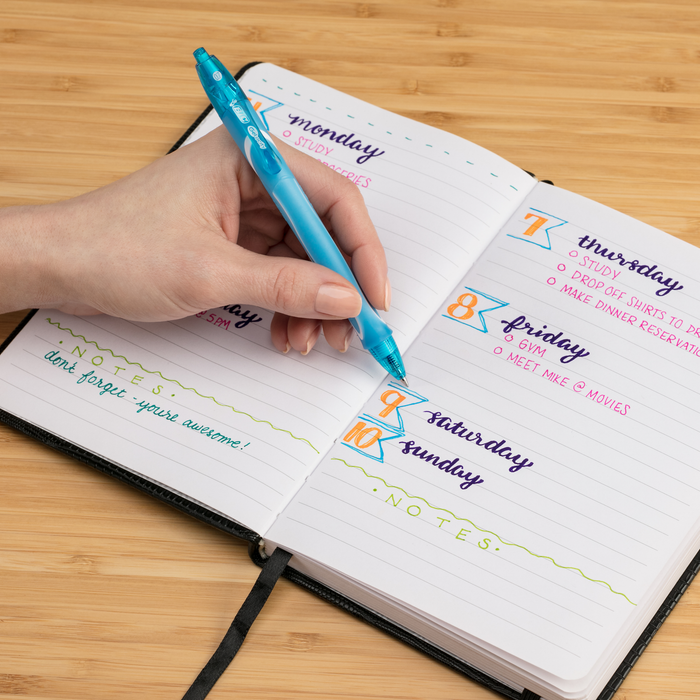 monday
STUDY
@ 5 PM
NOTES
don't forget - you're awesome!
7
thursday
STUDY
DROP OFF SHIRTS TO
MAKE DINNER
8
friday
GYM
MEET MIKE @ MOVIES
9
saturday
10
sunday
NOTES